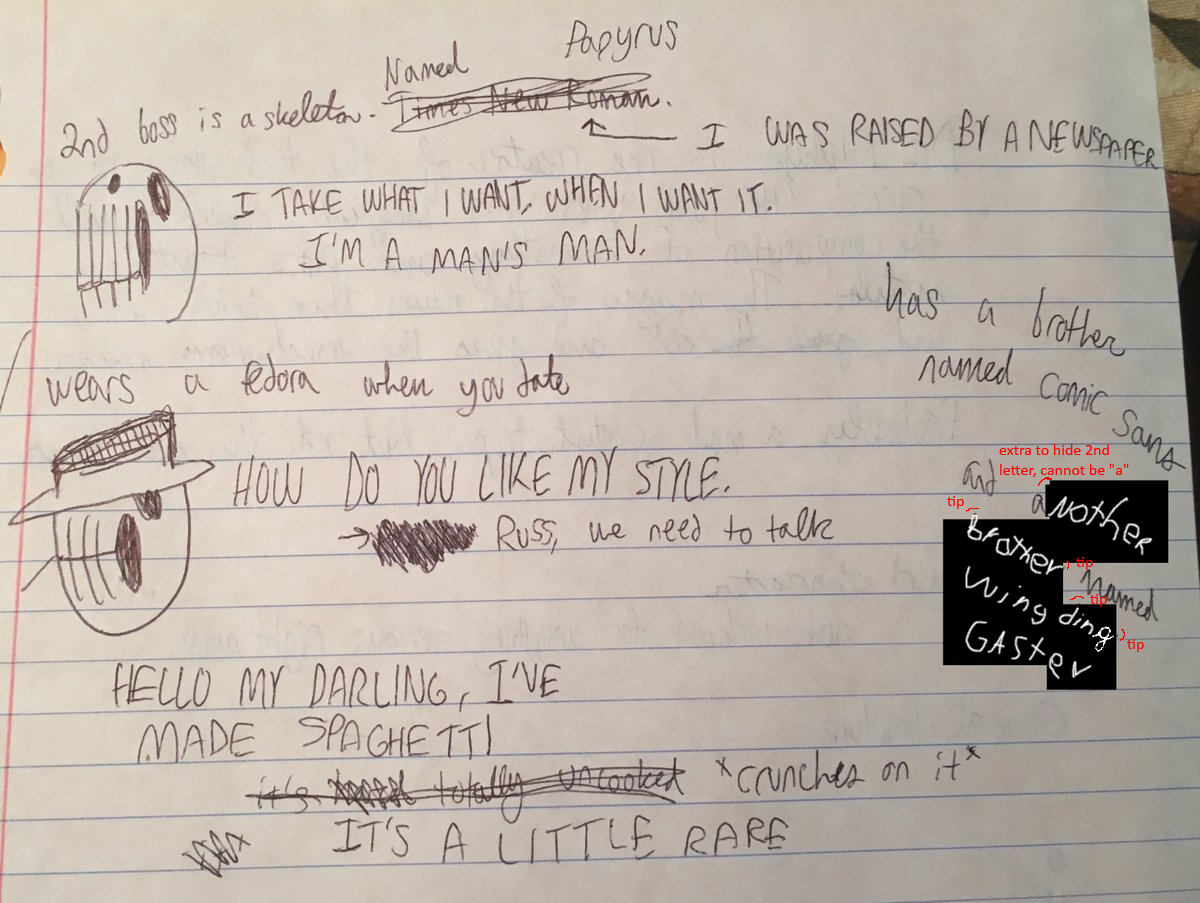 Papyrus
Named
2nd boss is a skeleton. Times New Roman.
I WAS RAISED BY A NEWSPAPER
I TAKE WHAT I WANT, WHEN I WANT IT.
I'M A MAN'S MAN.
has a brother
named Comic Sans
wears a fedora when you date
extra to hide 2nd
letter, cannot be "a"
and
aNother
tip
HOW DO YOU LIKE MY STYLE.
Russ, we need to talk
brother
tip
named
tip
Wing ding
tip
GASter
HELLO MY DARLING, I'VE
MADE SPAGHETTI
it's totally uncooked *crunches on it*
IT'S A LITTLE RARE